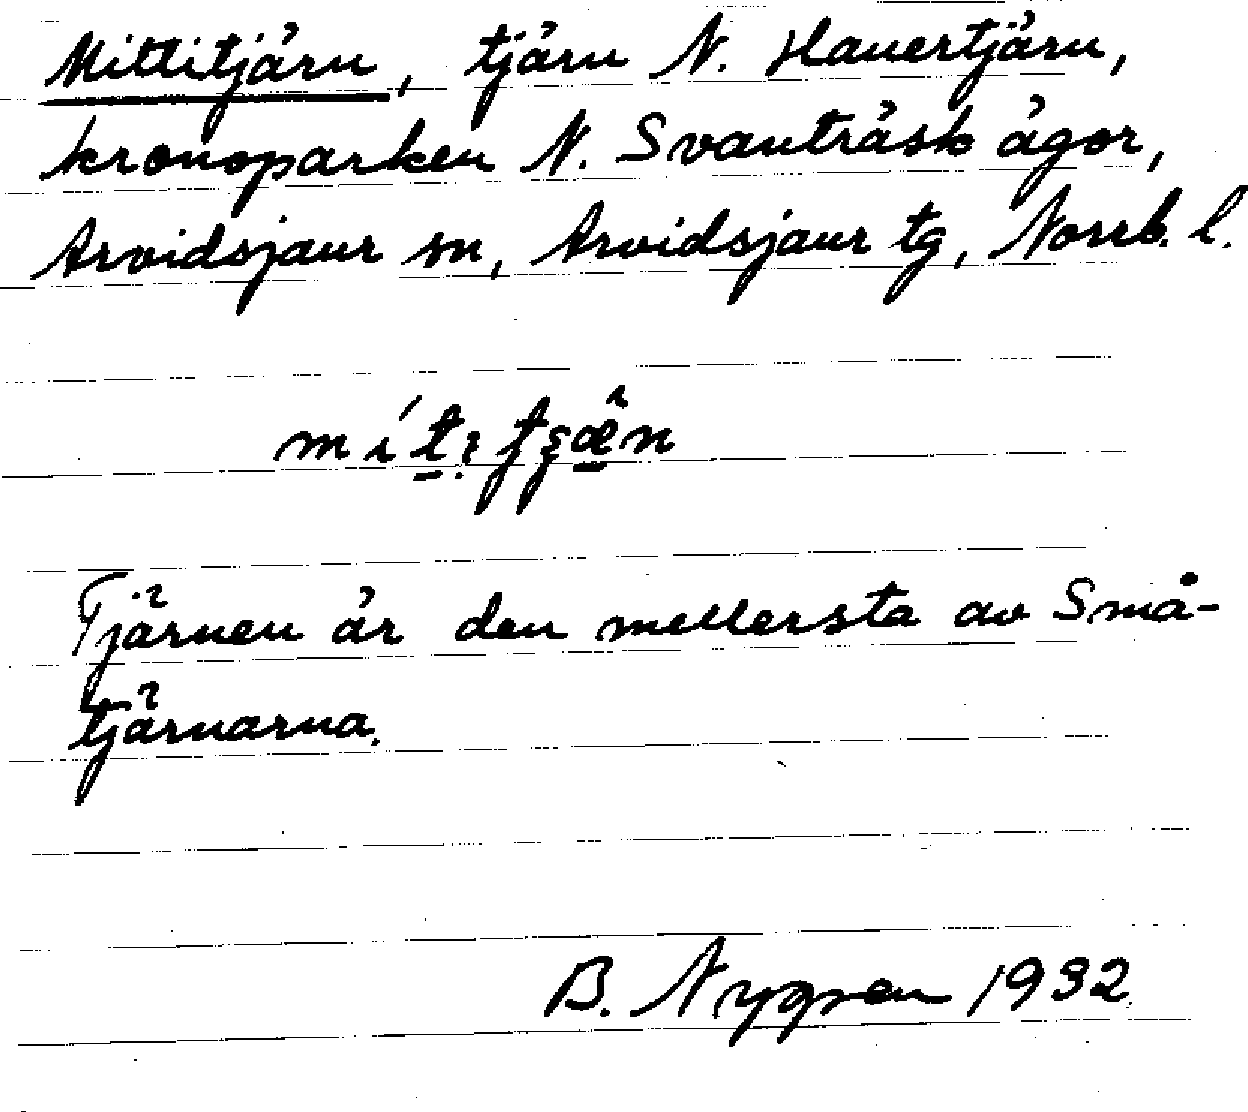 Mittitjärn, tjärn N. Hauertjärn,
kronoparken N. Svanträsk ägor,
Arvidsjaur sn, Arvidsjaur tg, Norrb. l.
Tjärnen är den mellersta av Små-
tjärnarna.
B. Nygren 1932